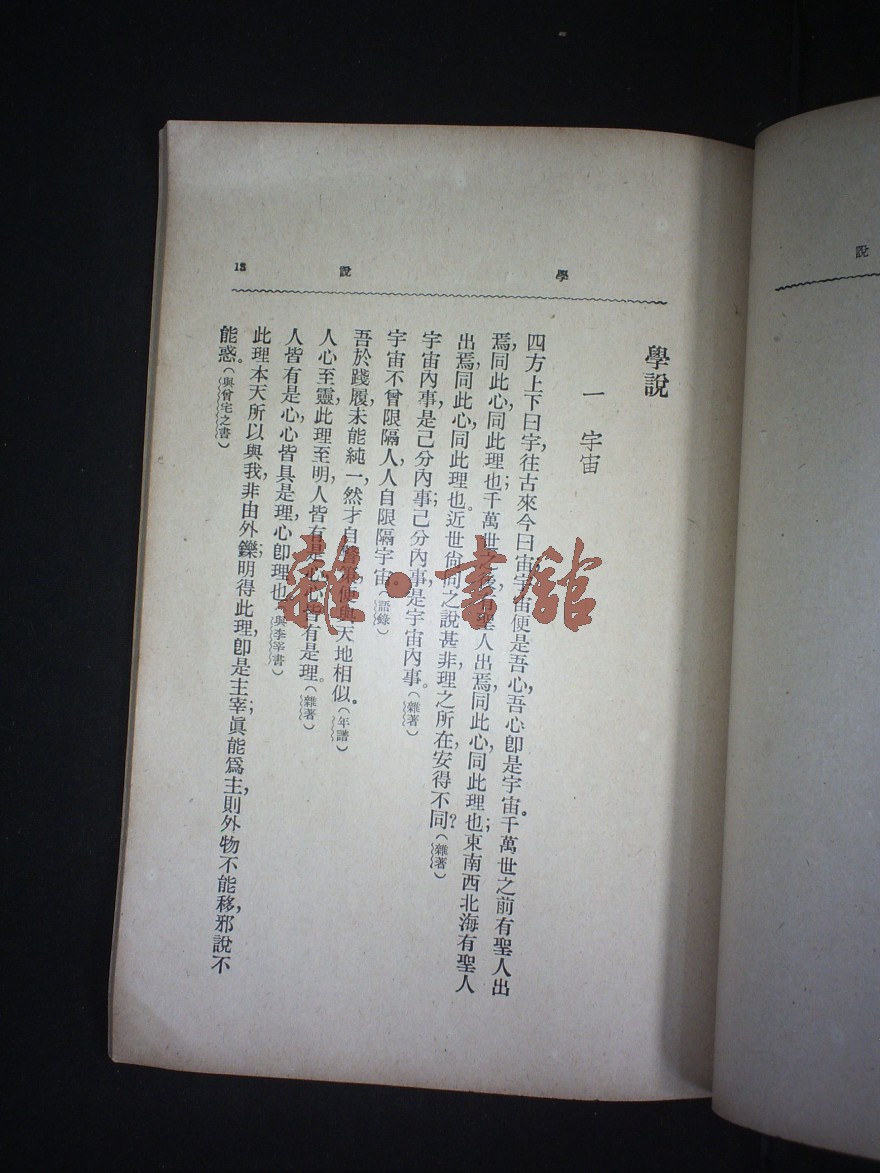 學說
13
說
學說
一 宇宙
四方上下曰宇,往古來今曰宙,宇宙便是吾心,吾心卽是宇宙。千萬世之前有聖人出
焉,同此心,同此理也;千萬世之後有聖人出焉,同此心,同此理也;東南西北海有聖人
出焉,同此心,同此理也。近世尙同之說甚非,理之所在,安得不同?(雜著)
宇宙內事,是己分內事;己分內事,是宇宙內事。(雜著)
宇宙不曾限隔人,人自限隔宇宙。(語錄)
吾於踐履未能純一,然才自警策,便與天地相似。(年譜)
人心至靈,此理至明,人皆有是心,心皆有是理。(雜著)
人皆有是心,心皆具是理,心卽理也。(與李宰書)
此理本天所以與我,非由外鑠;明得此理,卽是主宰;眞能爲主,則外物不能移,邪說不
能惑。(與曾宅之書)
雜·書館